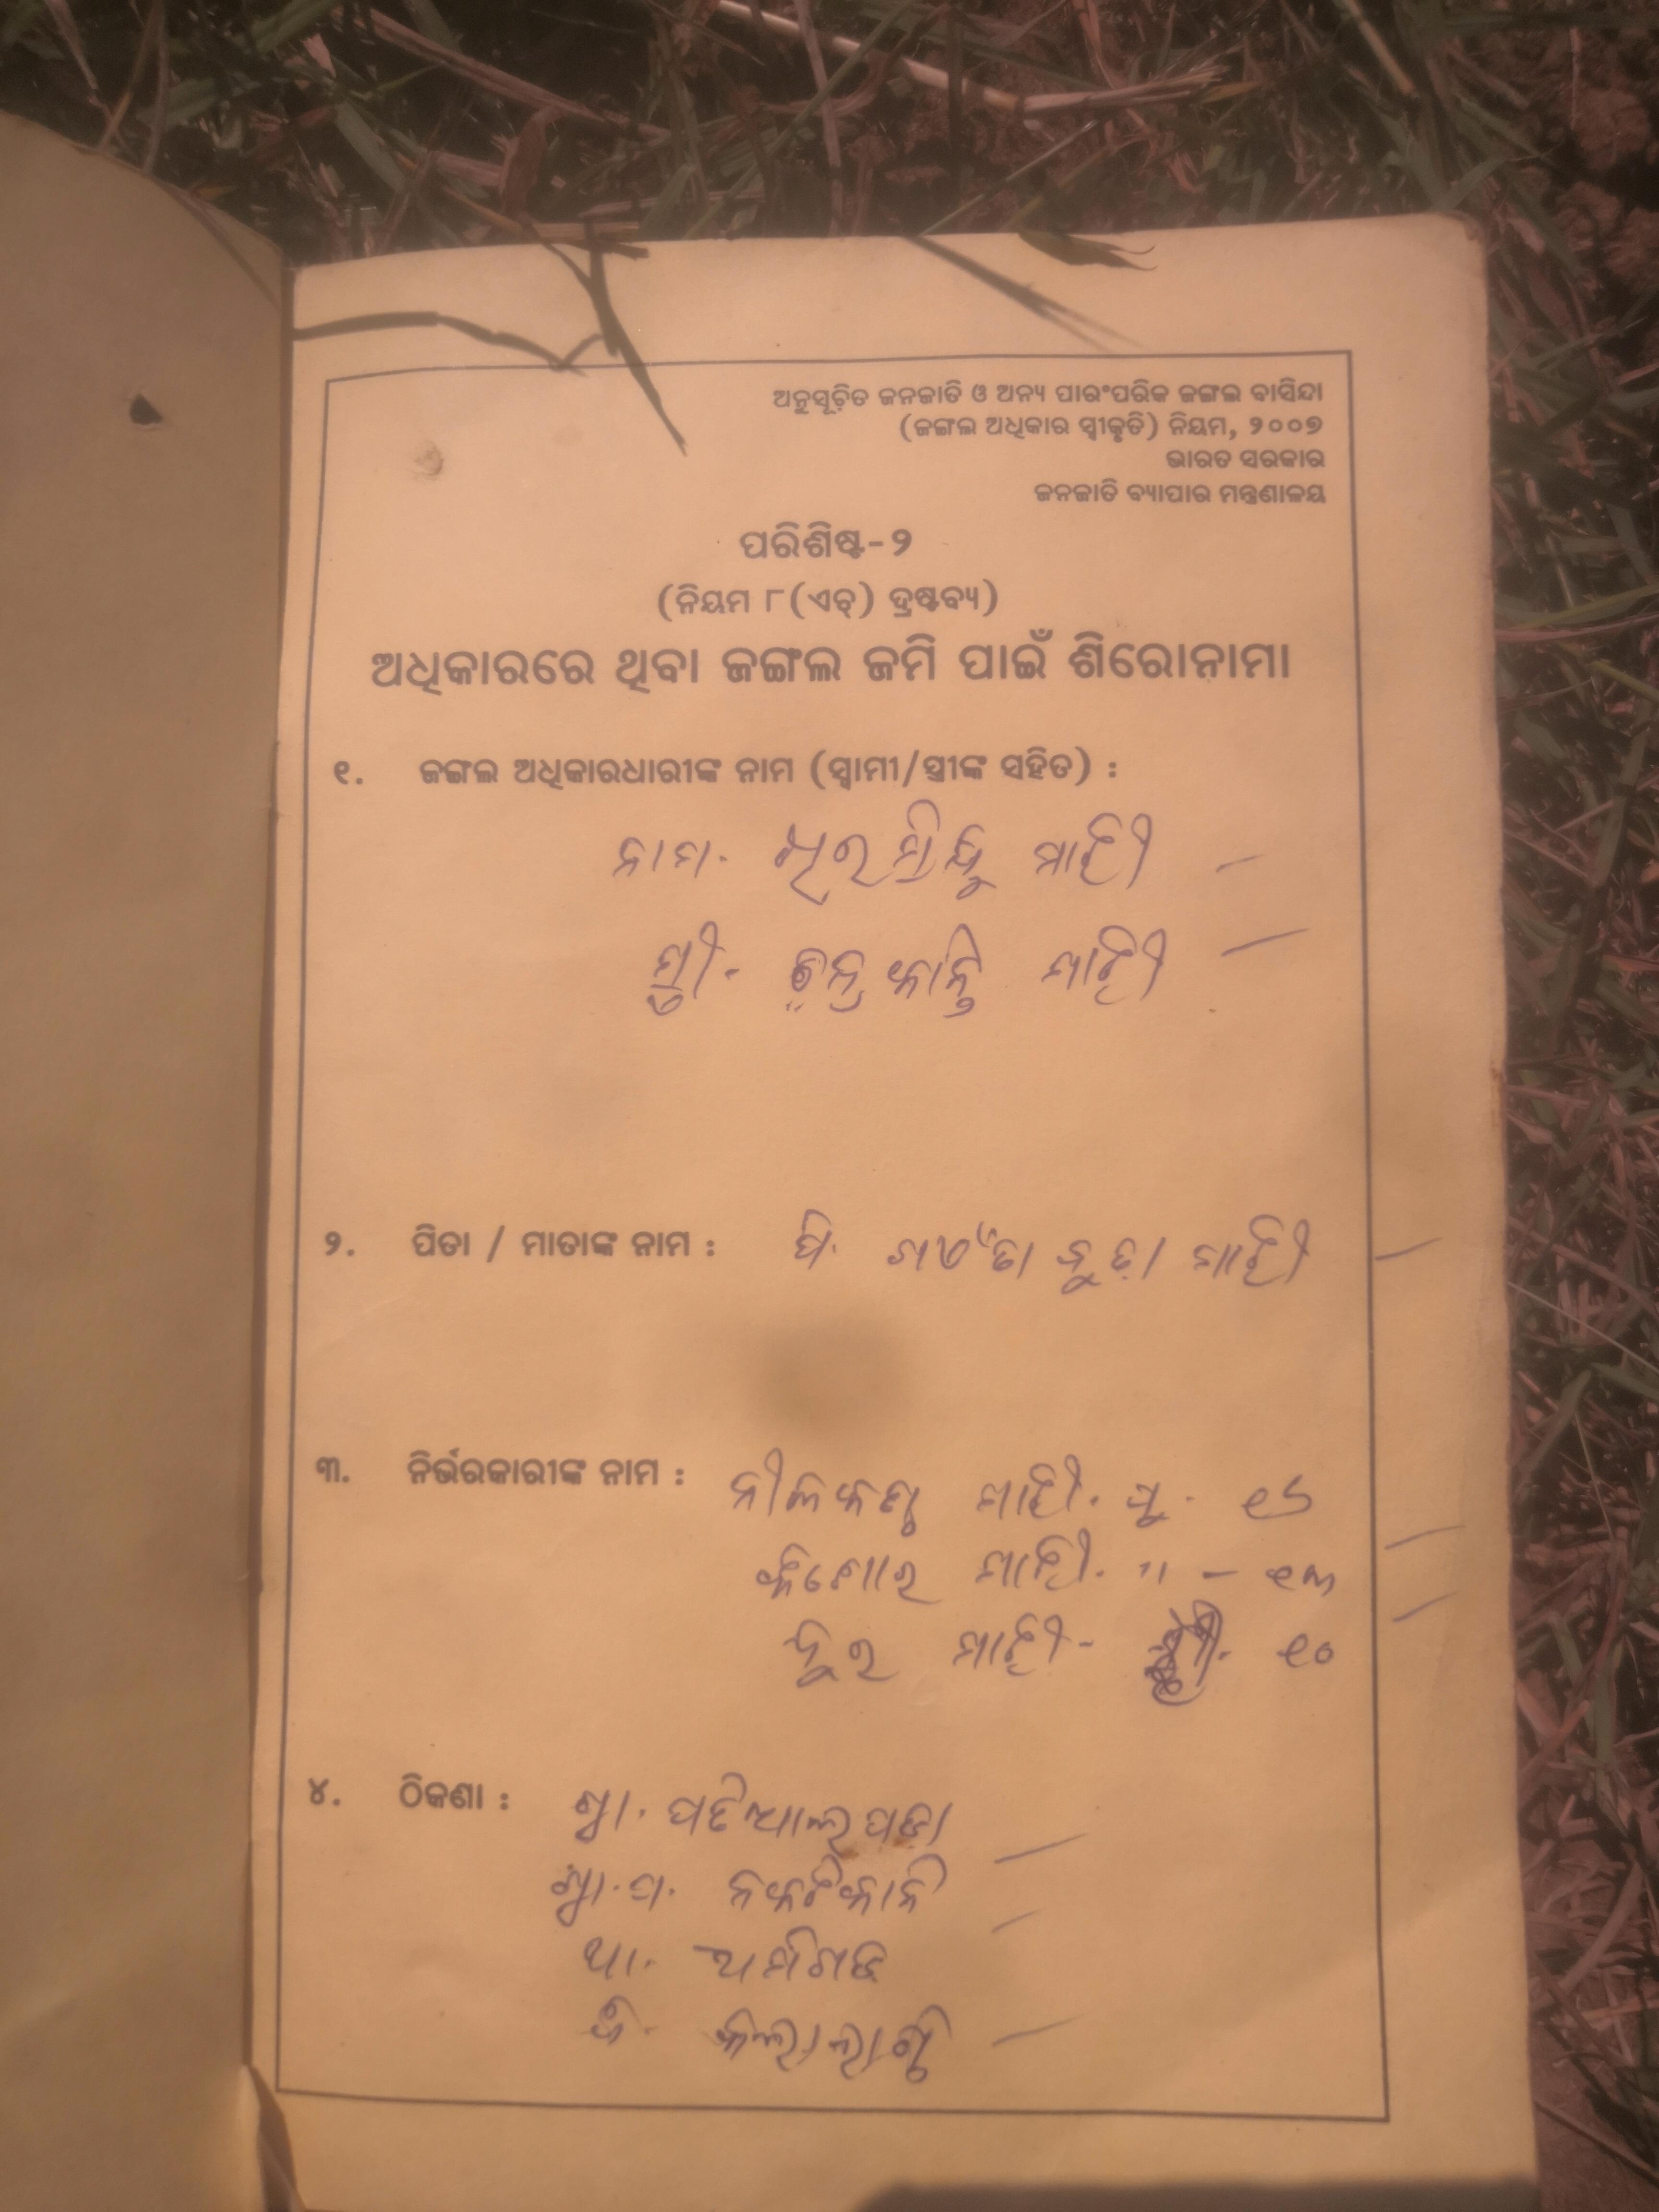 ଅନୁସୂଚିତ ଜନଜାତି ଓ ଅନ୍ୟ ପାରଂପରିକ ଜଙ୍ଗଲ ବାସିନ୍ଦା
(ଜଙ୍ଗଲ ଅଧିକାର ସ୍ୱୀକୃତି) ନିୟମ, ୨୦୦୭
ଭାରତ ସରକାର
ଜନଜାତି ବ୍ୟାପାର ମନ୍ତ୍ରଣାଳୟ
ପରିଶିଷ୍ଟ-୨
(ନିୟମ ୮(ଏଚ୍) ଦ୍ରଷ୍ଟବ୍ୟ)
ଅଧିକାରରେ ଥିବା ଜଙ୍ଗଲ ଜମି ପାଇଁ ଶିରୋନାମା
୧. ଜଙ୍ଗଲ ଅଧିକାରଧାରୀଙ୍କ ନାମ (ସ୍ୱାମୀ/ସ୍ତ୍ରୀଙ୍କ ସହିତ) :
ନାମ. ମାଝୀ
ସ୍ତ୍ରୀ. ଚନ୍ଦ୍ରକାନ୍ତି ମାଝୀ
୨. ପିତା / ମାତାଙ୍କ ନାମ : ପି. ମାଝୀ
୩. ନିର୍ଭରକାରୀଙ୍କ ନାମ : ନୀଳକଣ୍ଠ ମାଝୀ. ପୁ. ୧୬
କିଶୋର ମାଝୀ. " - ୧୩
ମାଝୀ - ୧୦
୪. ଠିକଣା : ଗ୍ରା.
ଗ୍ରା.ପ.
ଥା.
ଜି.